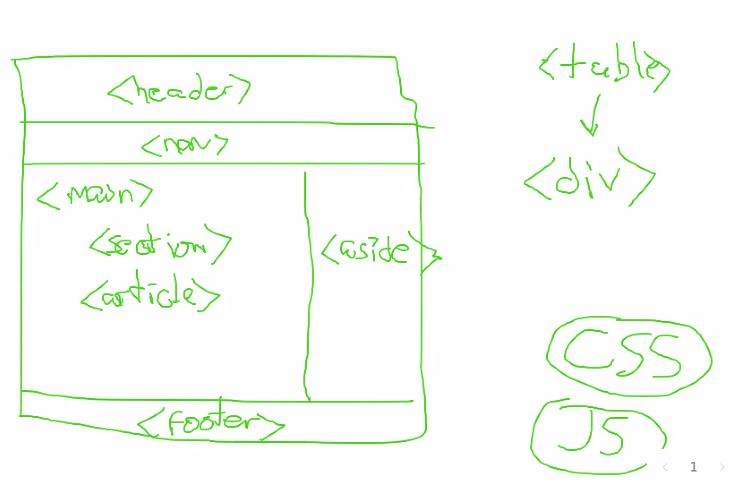 <header>
<nav>
<main>
<section>
<article>
<aside>
<footer>
<table>
<div>
CSS
JS
1